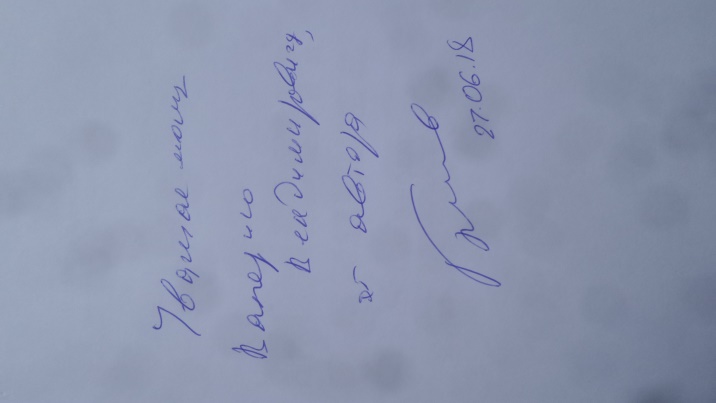 Уважаемому
Валерию
Владимировичу,
от автора
27.06.18